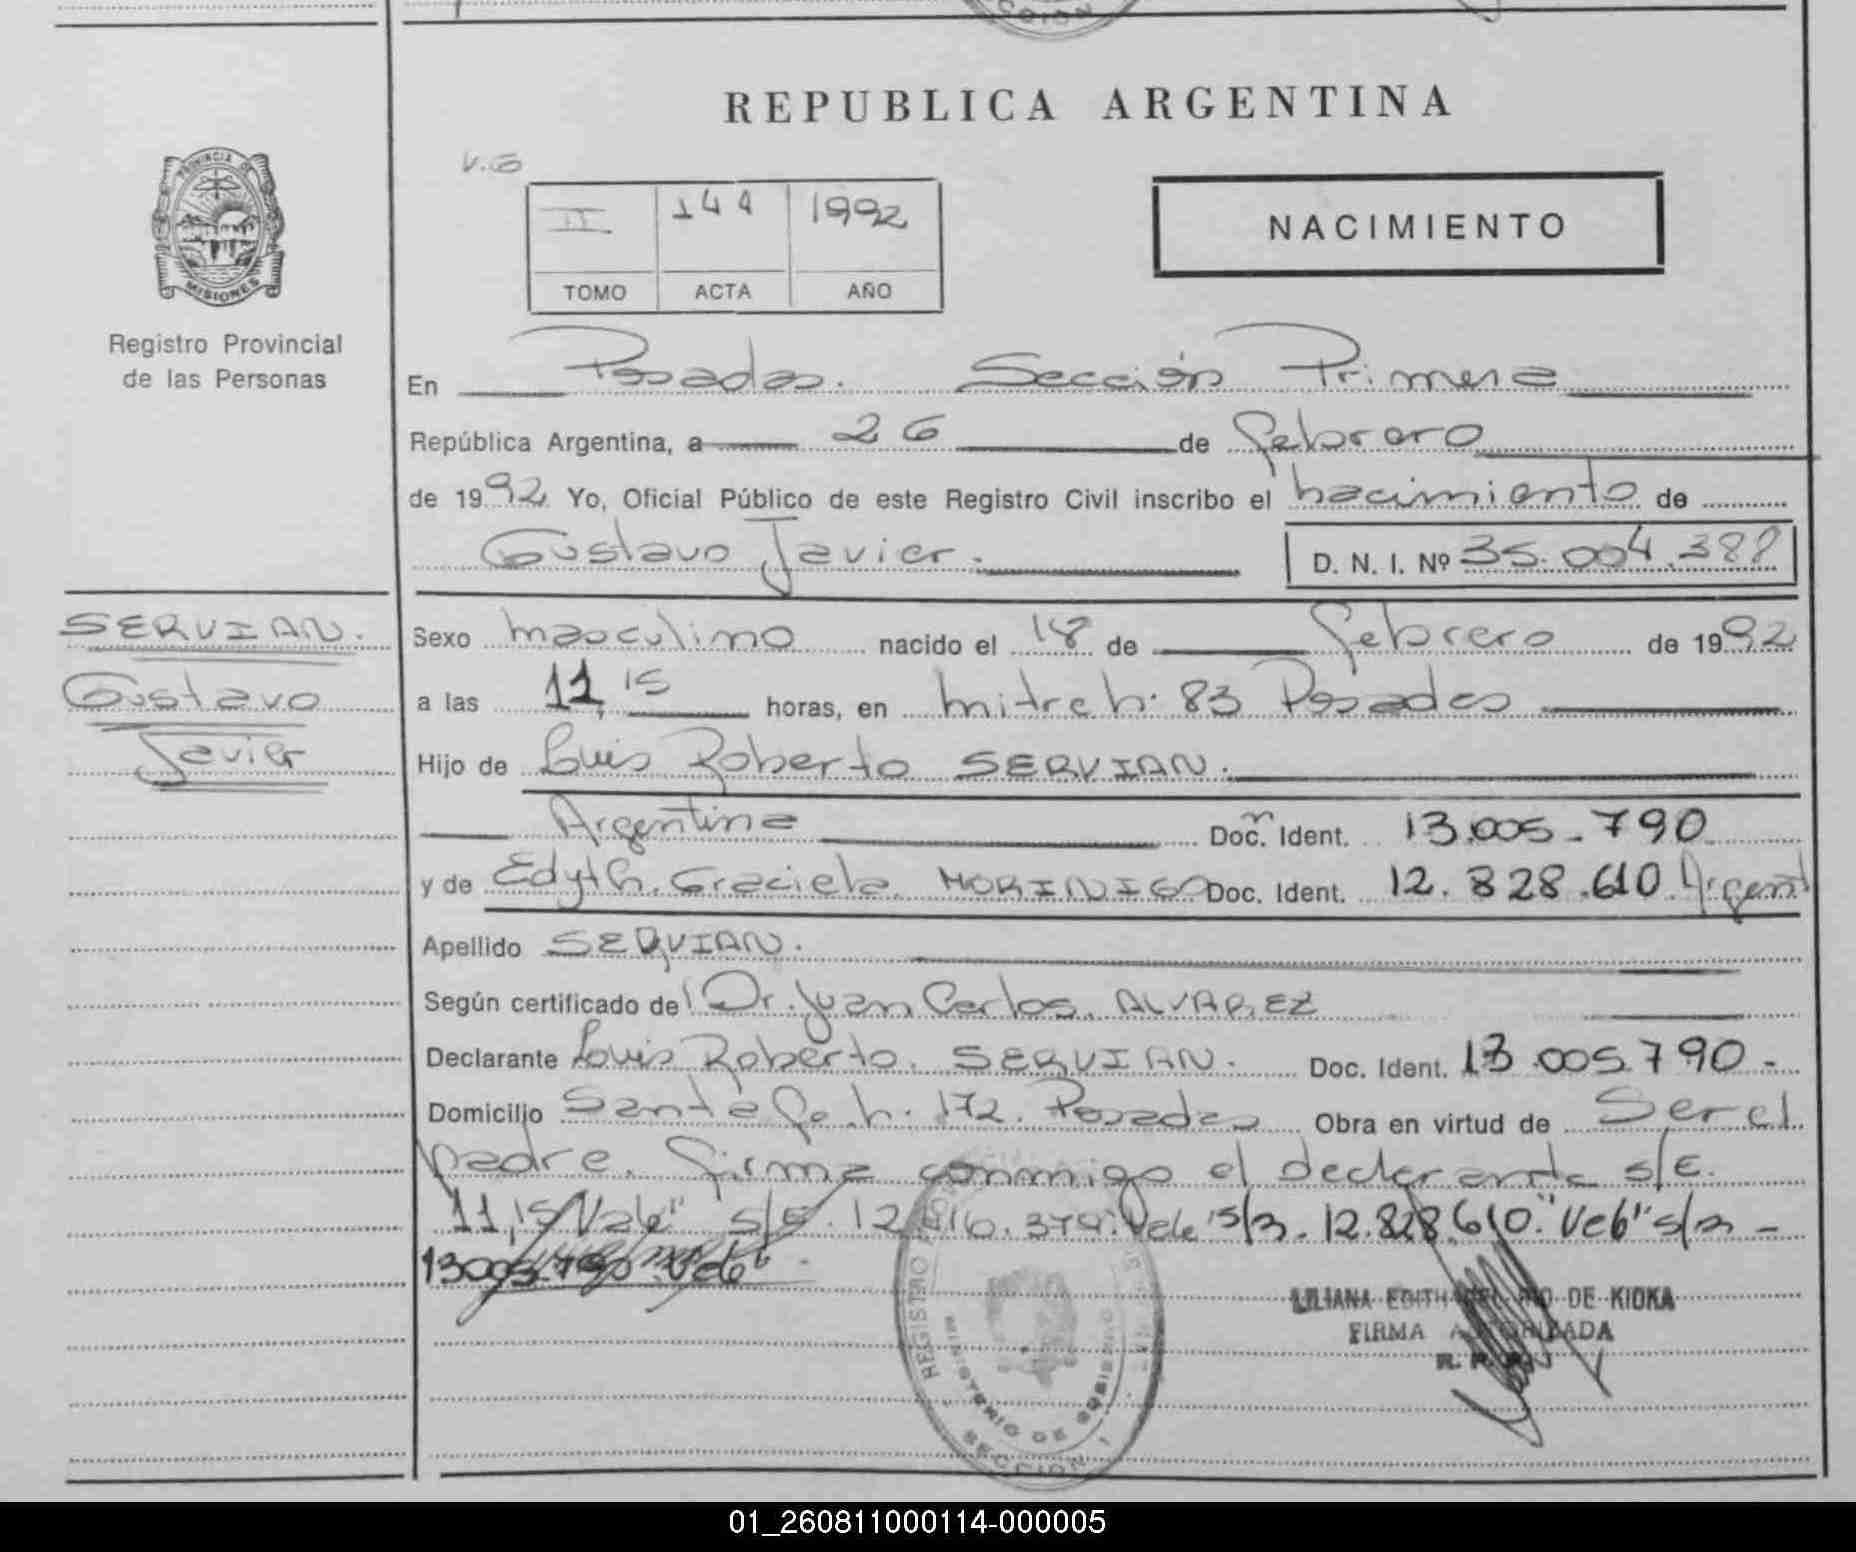 CCION
REPUBLICA ARGENTINA
V.G
II 144 1992
TOMO ACTA AÑO
NACIMIENTO
PROVINCIA DE
MISIONES
Registro Provincial
de las Personas
En Posadas. Sección Primera
República Argentina, a 26 de febrero
de 1992 Yo, Oficial Público de este Registro Civil inscribo el nacimiento de
Gustavo Javier. D. N. I. Nº 35.004.388
SERVIAN.
Gustavo
Javier
Sexo masculino nacido el 18 de febrero de 1992
a las 11,15 horas, en Mitre h. 83 Posadas
Hijo de Luis Roberto SERVIAN.
Argentina Doc. Ident. 13.005.790
y de Edyth. Graciela. MORINIGO Doc. Ident. 12.828.610 Argent
Apellido SERVIAN.
Según certificado del Dr. Juan Carlos. ALVAREZ
Declarante Luis Roberto. SERVIAN. Doc. Ident. 13.005.790-
Domicilio Santa fe. h. 172. Posadas Obra en virtud de Ser el
padre. firma conmigo el declarante s/E.
11,15 "Vale" s/E. 12.416.379. Vale s/r. 12.828.610."Vale" s/r -
13005.790 "Vale".
LILIANA EDITH DEL RIO DE KIOKA
FIRMA AUTORIZADA
REGISTRO
MINISTERIO DE GOBIERNO
SECCION 1
01_260811000114-000005